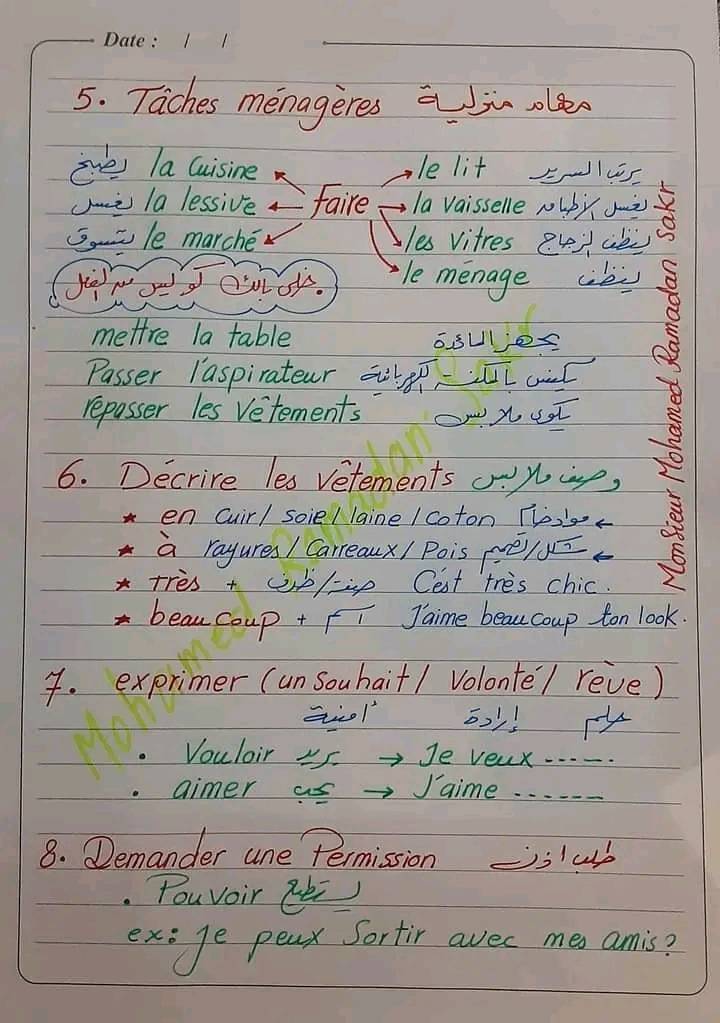 Date : / /
5. Tâches ménagères مهام منزلية
la Cuisine يطبخ
la lessive يغسل
le marché يتسوق
Faire
le lit يرتب السرير
la vaisselle يغسل الأطباق
les vitres ينظف الزجاج
le ménage ينظف
خلى بالك كويس من الفعل.
mettre la table يجهز المائدة
Passer l'aspirateur يكنس بالمكنسة الكهربائية
repasser les vêtements يكوى ملابس
6. Décrire les vêtements وصف ملابس
* en cuir / soie / laine / coton مواد خام ←
* à rayures / Carreaux / Pois شكل / تصميم ←
* Très + صفة / ظرف C'est très chic.
* beaucoup + اسم J'aime beaucoup ton look.
7. exprimer (un souhait / Volonté / rève)
أمنية إرادة حلم
• Vouloir يريد → Je veux ------
• aimer يحب → J'aime ------
8. Demander une Permission طلب اذن
• Pouvoir يستطيع
ex: Je peux Sortir avec mes amis?
Monsieur Mohamed Ramadan Sakr
Mohamed Ramadan Sakr